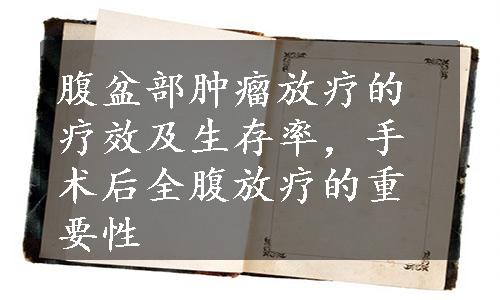 腹盆部肿瘤放疗的
疗效及生存率，手
术后全腹放疗的重
要性